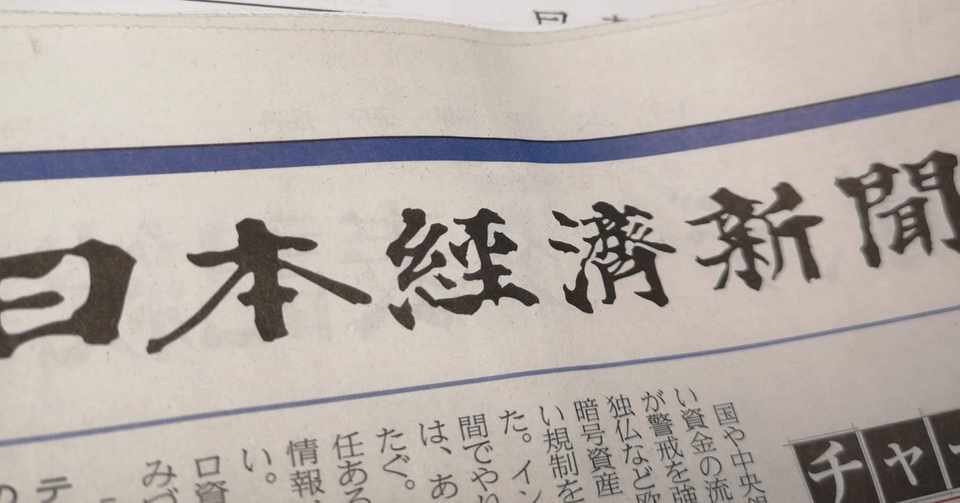 日本經濟新聞
チャ
国や中央
い資金の流
が警戒を強
独仏など欧
暗号資産
い規制を
た。イン
間でやり
は、あ
たぐ。
任ある
情報
い。
ロ資
みづ
テ